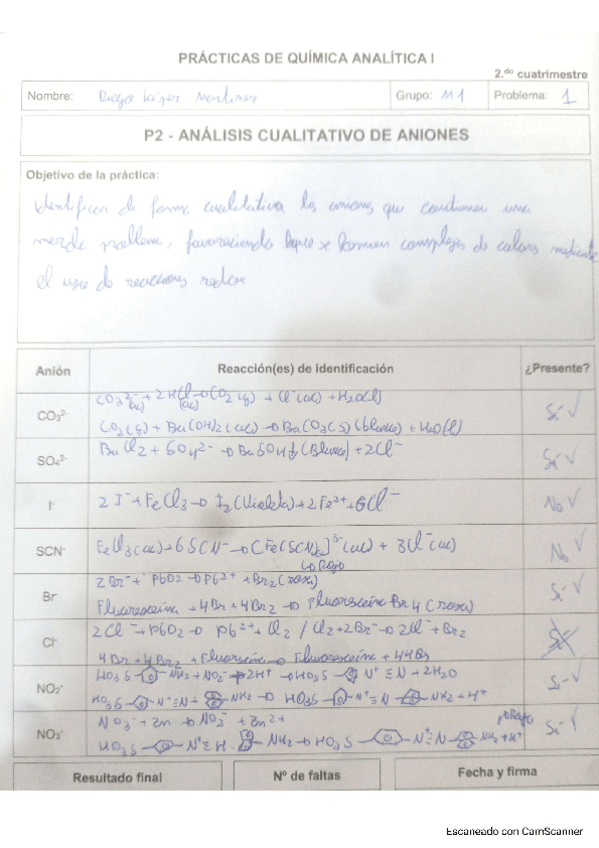 PRÁCTICAS DE QUÍMICA ANALÍTICA I
2.do cuatrimestre
Nombre: Diego López Martínez Grupo: M1 Problema: 1
P2 - ANÁLISIS CUALITATIVO DE ANIONES
Objetivo de la práctica:
Identificar de forma cualitativa los aniones que contienen una
mezcla problema, favoreciendo que se formen complejos de colores mediante
el uso de reacciones redox
Anión Reacción(es) de identificación ¿Presente?
CO₃²⁻ + 2HCl → CO₂(g) + Cl⁻(ac) + H₂O(l)
(ac) (ac)
CO₃²⁻ Sí ✓
CO₂(g) + Ba(OH)₂(ac) → BaCO₃(s)(blanco) + H₂O(l)
SO₄²⁻ BaCl₂ + SO₄²⁻ → BaSO₄↓(Blanco) + 2Cl⁻ Sí ✓
I⁻ 2I⁻ + FeCl₃ → I₂(Violeta) + 2Fe²⁺ + 6Cl⁻ No ✓
SCN⁻ FeCl₃(ac) + 6SCN⁻ → [Fe(SCN)₆]³⁻(ac) + 3Cl⁻(ac) No ✓
↳ Rojo
Br⁻ 2Br⁻ + PbO₂ → Pb²⁺ + Br₂(rosa) Sí ✓
Fluoresceína + 4Br + 4Br₂ → Fluoresceína Br₄(rosa)
Cl⁻ 2Cl⁻ + PbO₂ → Pb²⁺ + Cl₂ / Cl₂ + 2Br⁻ → 2Cl⁻ + Br₂
4Br + 4Br₂ + Fluoresceína → Fluoresceína + 4HBr
NO₂⁻ HO₃S NH₂ + NO₂⁻ + 2H⁺ → HO₃S N⁺≡N + 2H₂O Sí ✓
HO₃S N⁺≡N + NH₂ → HO₃S N⁺=N NH₂ + H⁺
NO₃⁻ NO₃⁻ + Zn → NO₂⁻ + Zn²⁺ Rojo Sí ✓
HO₃S N⁺≡N NH₂ → HO₃S N=N NH₂ + H⁺
Resultado final Nº de faltas Fecha y firma
Escaneado con CamScanner